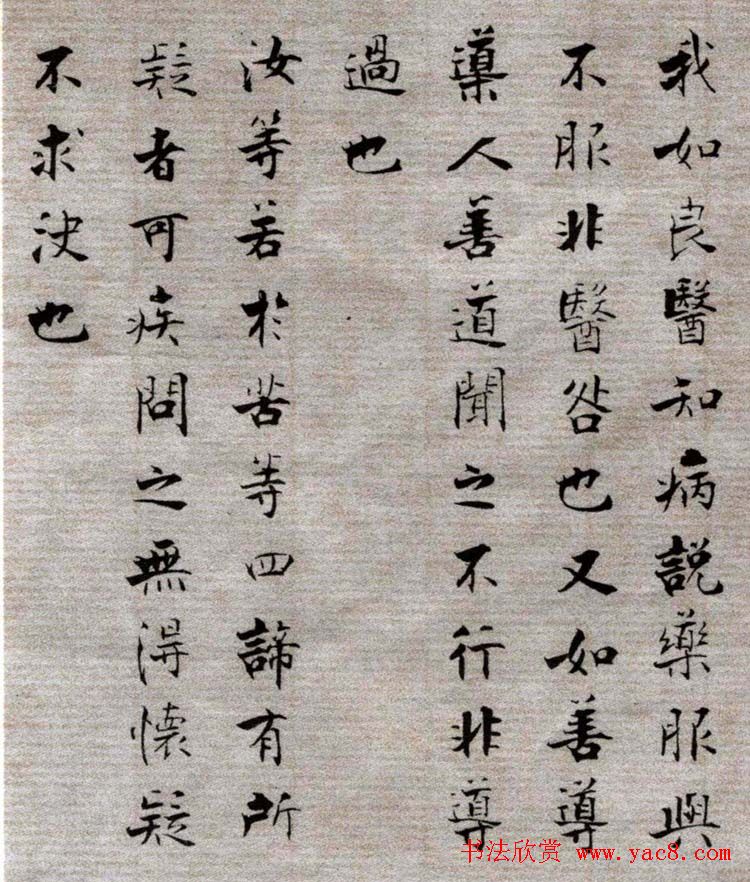 我如良醫知病說藥服與
不服非醫咎也又如善導
導人善道聞之不行非導
過也
汝等若於苦等四諦有所
疑者可疾問之無得懷疑
不求決也
书法欣赏 www.yac8.com